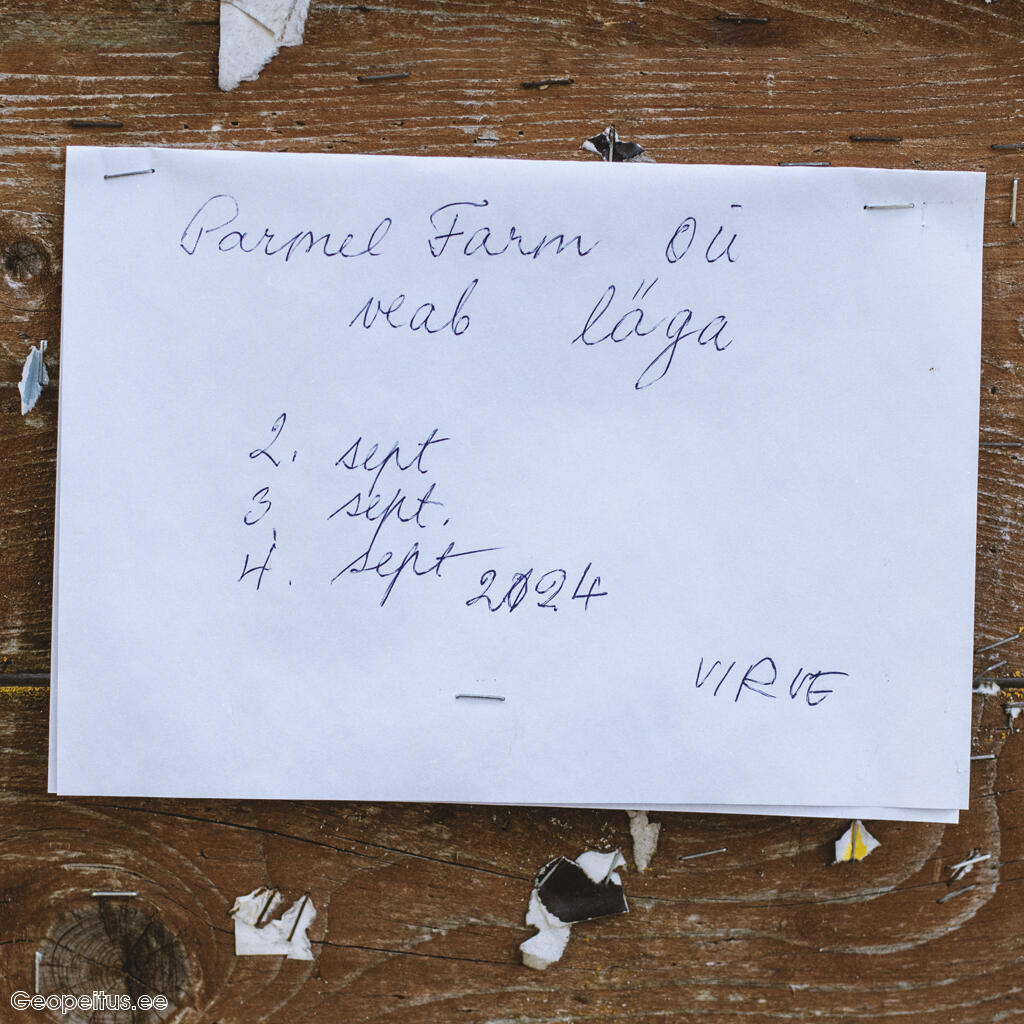 Parmel Farm OÜ
veab läga
2. sept
3. sept.
4. sept 2024
VIRVE
Geopeitus.ee